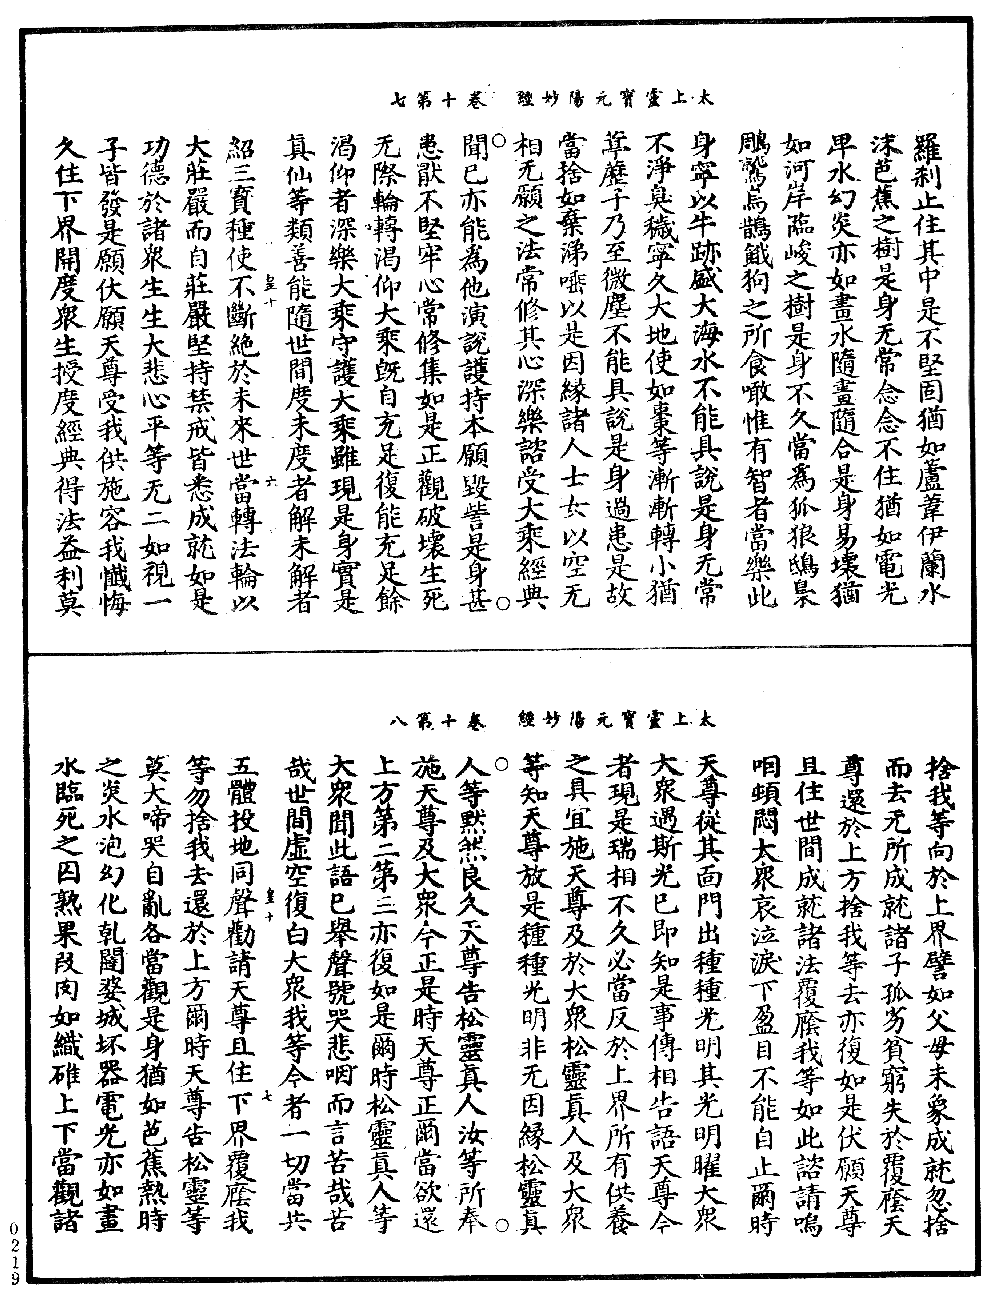 太上靈寶元陽妙經　卷十第七
羅刹止住其中是不堅固猶如蘆葦伊蘭水
沫芭蕉之樹是身无常念念不住猶如電光
㬥水幻炎亦如畫水隨畫隨合是身易壞猶
如河岸臨峻之樹是身不久當爲狐狼鴟梟
鵰鷲烏鵲餓狗之所食噉惟有智者當樂此
身寧以牛跡盛大海水不能具說是身无常
不淨臭穢寧久大地使如棗等漸漸轉小猶
葶藶子乃至微塵不能具說是身過患是故
當捨如棄涕唾以是因緣諸人士女以空无
相无願之法常修其心深樂諮受大乘經典
聞已亦能爲他演說護持本願毀訾是身甚
患猒不堅牢心常修集如是正觀破壞生死
无際輪轉渴仰大乘旣自充足復能充足餘
渴仰者深樂大乘守護大乘雖現是身實是
真仙等類善能隨世間度未度者解未解者
皇十　六
紹三寶種使不斷絕於未來世當轉法輪以
大莊嚴而自莊嚴堅持禁戒皆悉成就如是
功德於諸衆生生大悲心平等无二如視一
子皆發是願伏願天尊受我供施容我懺悔
久住下界開度衆生授度經典得法益利莫
太上靈寶元陽妙經　卷十第八
捨我等向於上界譬如父母未象成就忽捨
而去无所成就諸子孤劣貧窮失於覆廕天
尊還於上方捨我等去亦復如是伏願天尊
且住世間成就諸法覆廕我等如此諮請嗚
咽頓悶太衆哀泣淚下盈目不能自止爾時
天尊從其面門出種種光明其光明曜大衆
大衆遇斯光已即知是事傳相告語天尊今
者現是瑞相不久必當反於上界所有供養
之具宜施天尊及於大衆松靈真人及大衆
等知天尊放是種種光明非无因緣松靈真
人等默然良久天尊告松靈真人汝等所奉
施天尊及大衆今正是時天尊正爾當欲還
上方第二第三亦復如是爾時松靈真人等
大衆聞此語已舉聲號哭悲咽而言苦哉苦
哉世間虛空復白大衆我等今者一切當共
皇十　七
五體投地同聲勸請天尊且住下界覆廕我
等勿捨我去還於上方爾時天尊告松靈等
莫大啼哭自亂各當觀是身猶如芭蕉熱時
之炎水泡幻化乹闥婆城坏器電光亦如畫
水臨死之囚熟果段肉如織碓上下當觀諸
0219